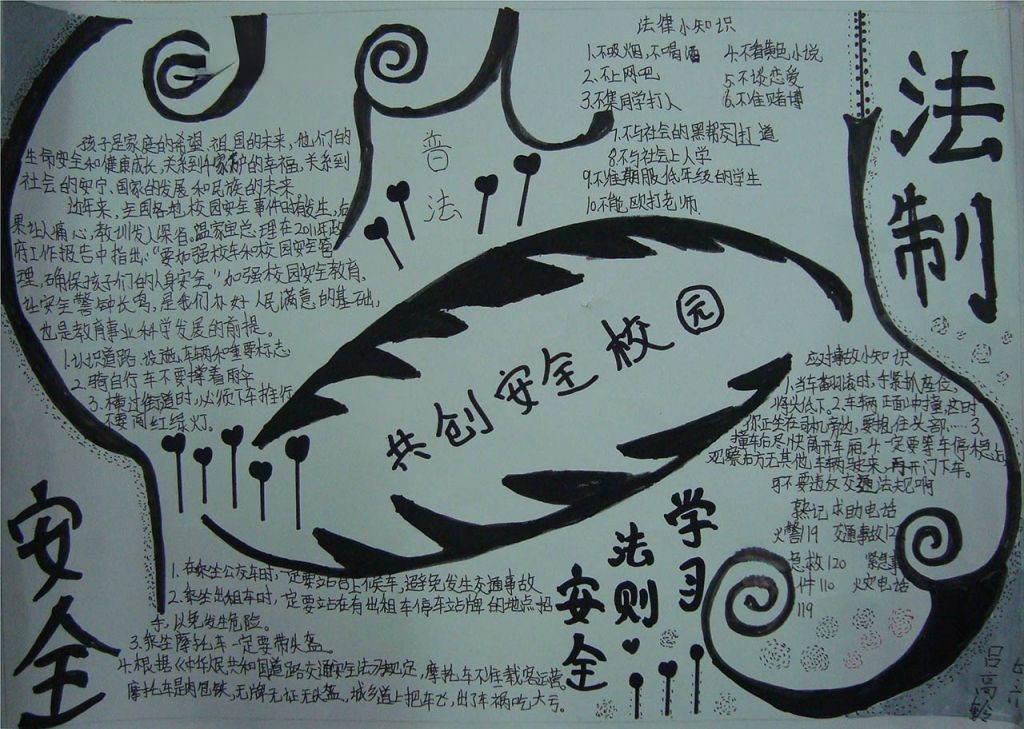 法律小知识
1.不吸烟,不喝酒
2.不上网吧
3.不集同学打人
4.不看黄色小说
5.不谈恋爱
6.不准赌博
7.不与社会的黑帮同道
8.不与社会上人学
9.不准欺服低年级的学生
10.不能欧打老师
法制
普法
孩子是家庭的希望,祖国的未来,他们的
生命安全和健康成长,关系到千家万户的幸福,关系到
社会的安宁、国家的发展和民族的未来
近年来,全国各地校园安全事件时有发生,后
果让人痛心,教训发人深省。温家宝总理在2011年政
府工作报告中指出:“要加强校车和校园安全管
理,确保孩子们的人身安全。”加强校园安全教育,
让安全警钟长鸣,是我们办好人民满意的基础,
也是教育事业科学发展的前提。
1.认识道路设施,车辆和重要标志
2.骑自行车不要撑着雨伞
3.横过街道时,必须下车推行
不要闯红绿灯。
共创安全校园
应对事故小知识
1.当车翻滚时,手紧抓座位,
将头低下。2.车辆正面冲撞,这时
你正坐在司机旁边,要抱住头部……3.
撞车后尽快离开车厢.4.一定要等车停稳
观察后方无其他车辆驶来,再开门下车。
可不要违反交通法规啊
熟记求助电话
火警119 交通事故12
急救120 紧急事
件110 火灾电话
119
安全
1.在乘坐公交车时,一定要站台上候车,避免发生交通事故
2.乘坐出租车时,一定要站在有出租车停车站牌的地点招
手,以免发生危险。
3.乘坐摩托车一定要带头盔
4.根据《中华人民共和国道路交通安全法》规定,摩托车不准载客运营。
摩托车是肉包铁,无牌无证无头盔,城乡道上把车飞,出了车祸吃大亏。
学习
法则
安全
吕高龄